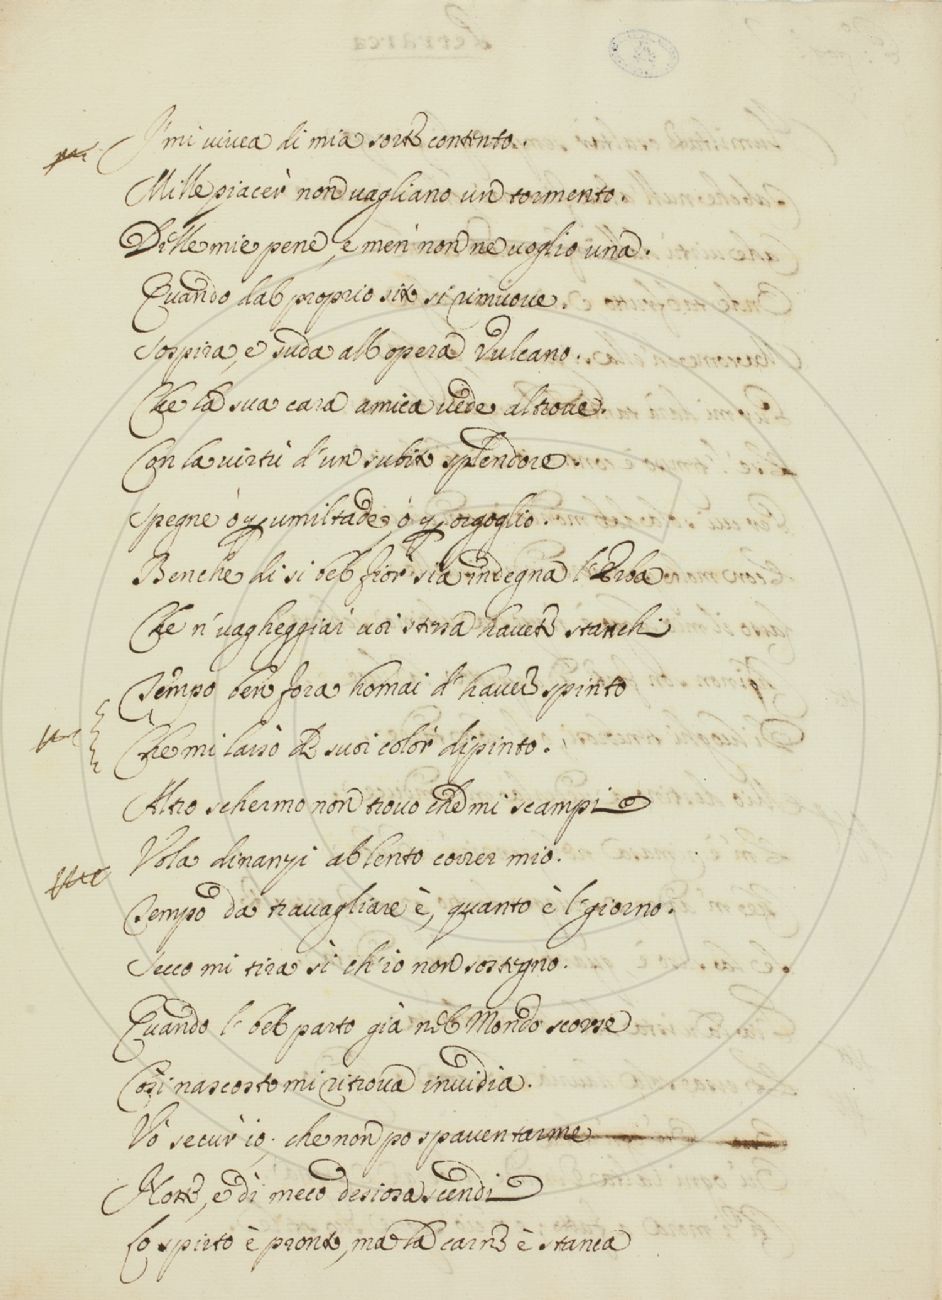 I' mi vivea di mia sorte contento.
Mille piacer' non vagliano un tormento.
Di lle mie pene, e men' non ne voglio una.
Quando dal proprio sito si rimuove
Sospira, e suda all opera Vulcano.
Che la sua cara amica vede altrove.
Con la virtù d'un subito splendore
Spegne ò p umiltade, ò p orgoglio.
Benche di si bel fior' sia indegna l'Erba
Che n' vagheggiar voi sterra havete stanchi
Tempo ben fora homai d' haver spinto
Che mi lassò de suoi color' dipinto.
Altro schermo non trovo che mi scampi
Vola dinanzi al lento correr mio.
Tempo da travagliare è, quanto è l' giorno.
Secco mi tira sì ch'io non sostegno.
Quando l' bel parto già nel Mondo scorse
Così nascosto mi ritrova invidia.
Vò secur' io, che non po spaventarme
Notte, e di meco desiora scendi
Lo spirto è pronto, ma la carne è stanca